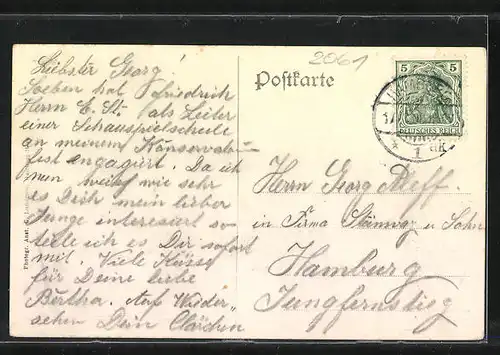 Liebster Georg!
Soeben hat Friedrich
Herrn E. St. als Leiter
einer Schauspielschule
an meinem Konservato-
engagiert. Da ich
nun weiß wie sehr
es Dich mein lieber
Junge interessiert so
teile ich es Dir sofort
mit. Viele Küsse
für Deine liebe
Bertha. Auf Wieder-
sehen Dein Clärchen
2061
Postkarte
5 5
DEUTSCHES REICH
Herrn Georg
in Firma Steinway u. Sohn
Hamburg
Jungfernstieg
Photogr. Anst.